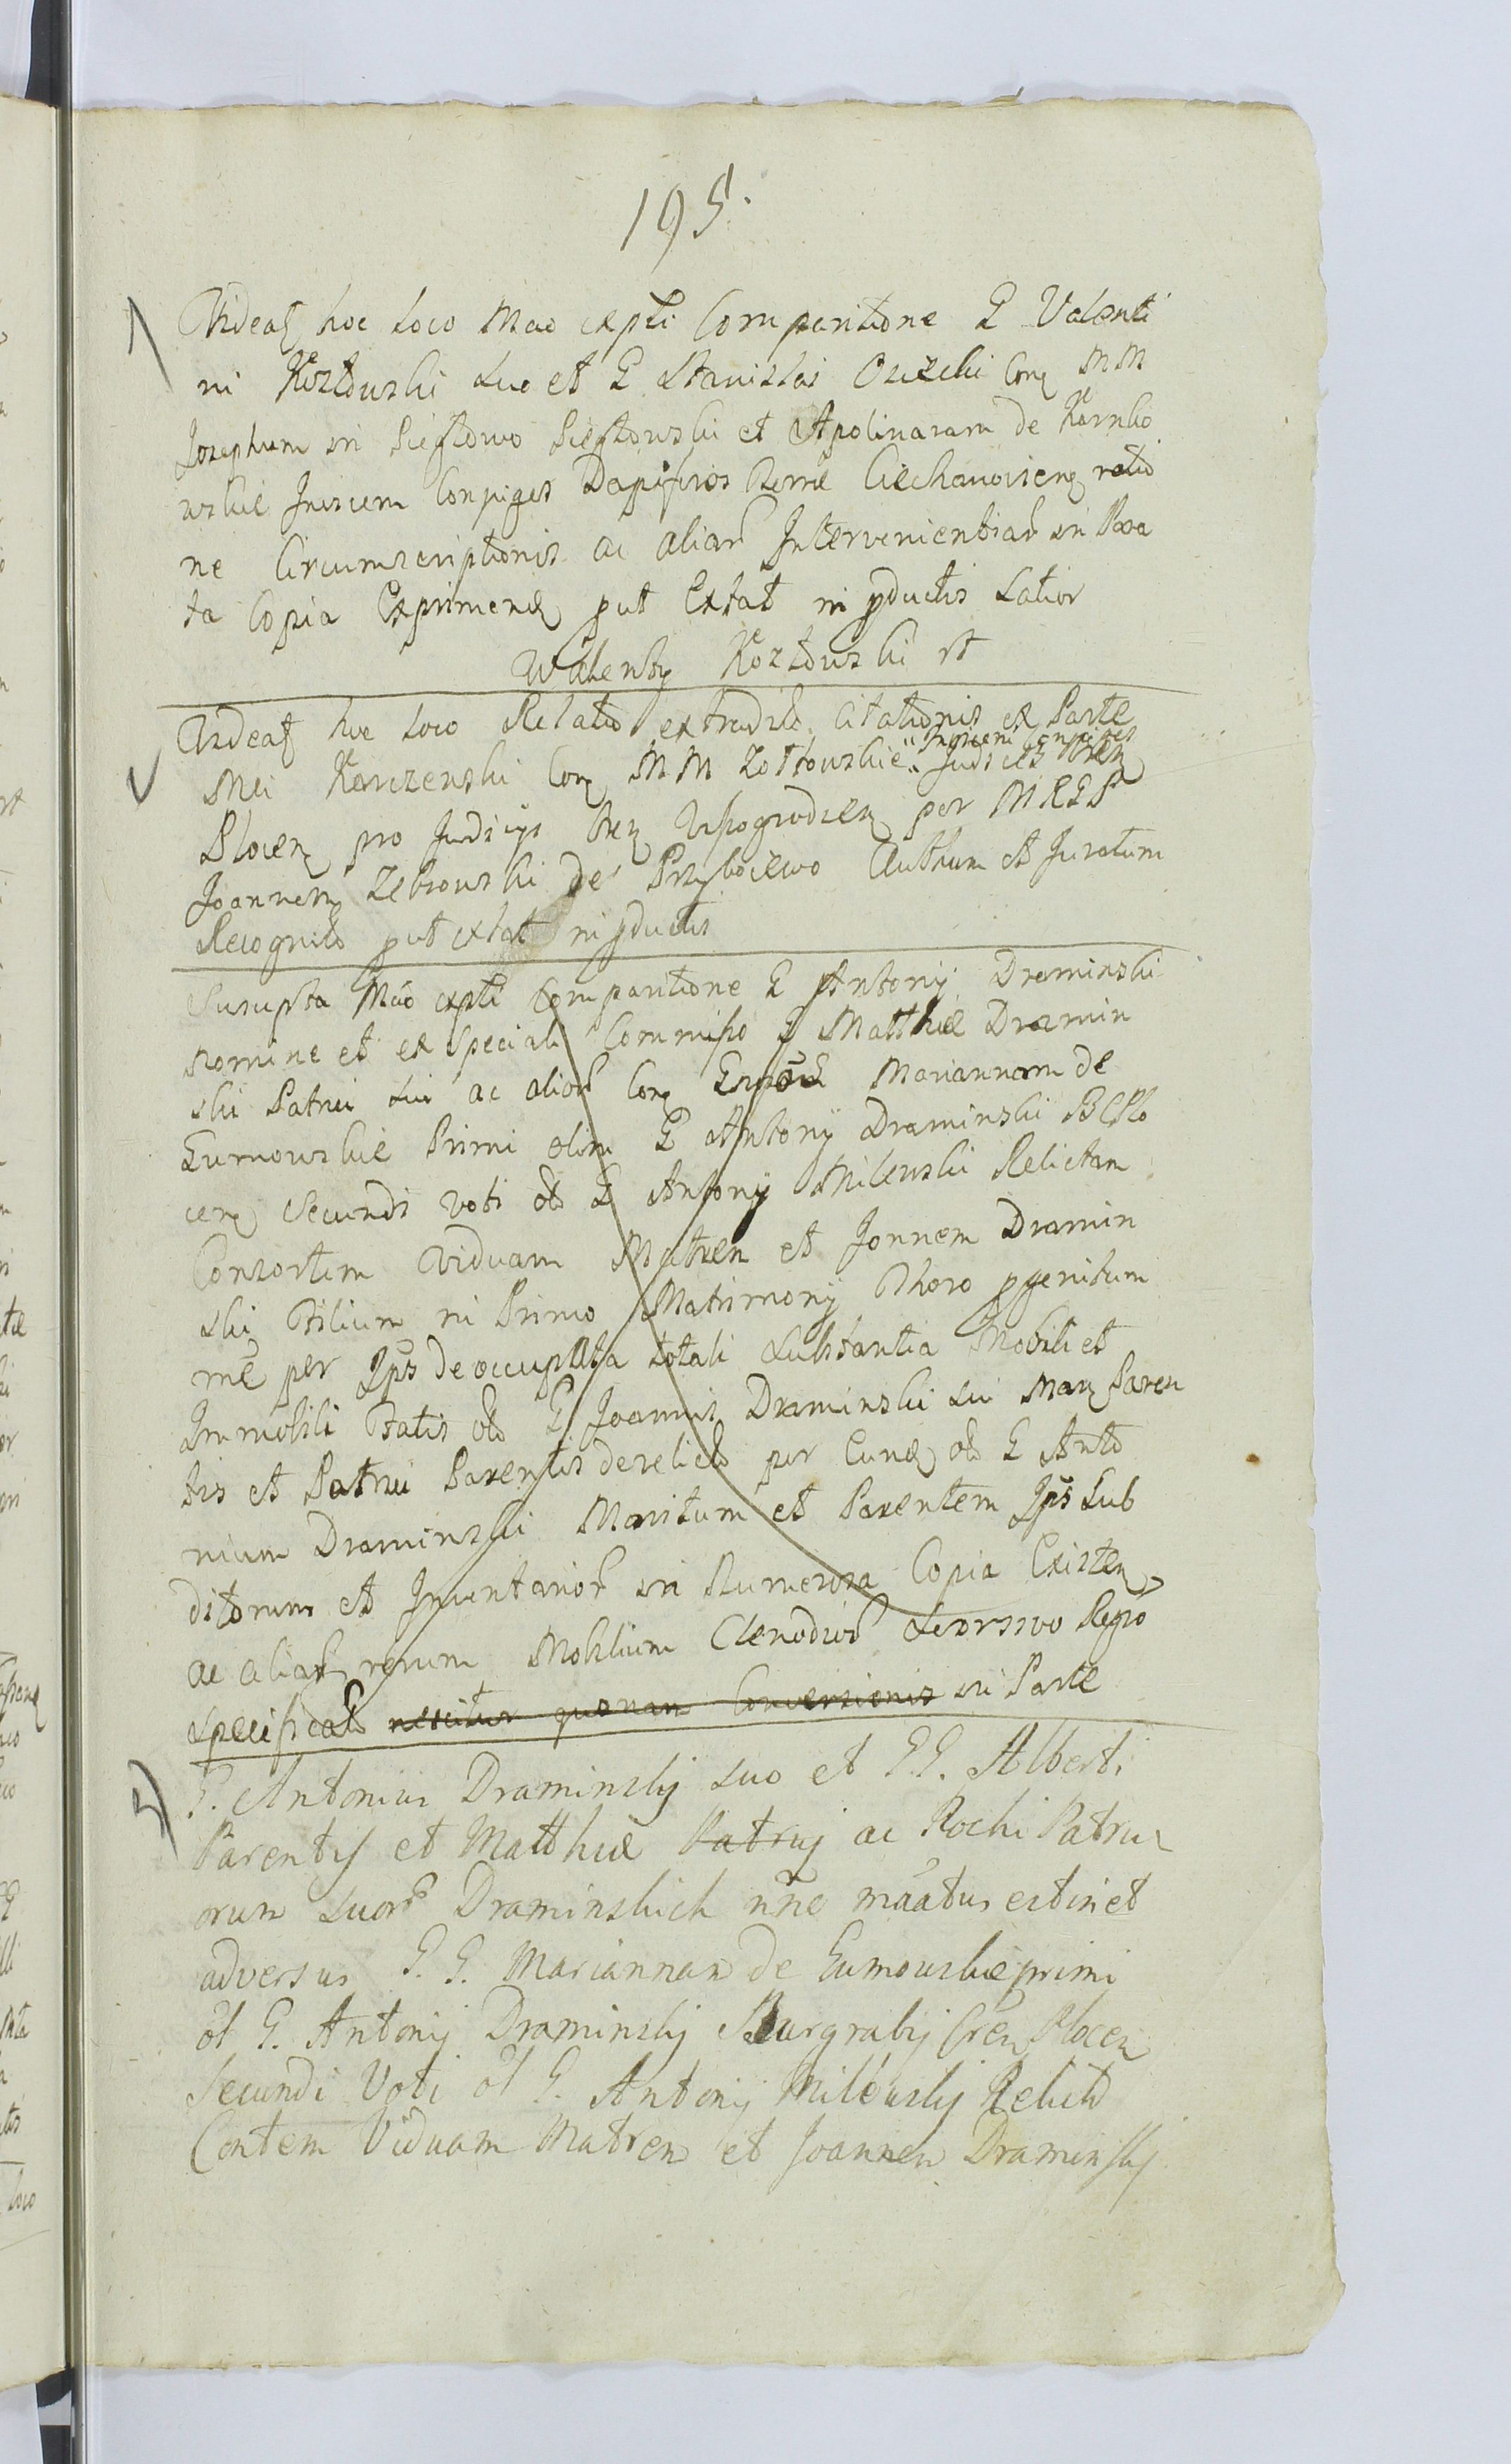 195.
Videat hoc Loco Mao expti Comparitione G Valenti
ni Kozłowski Suo et G Stanislai Osiecki Con MM
Josephum in Sieftowo et Apolinaram de Karnko
wskie Invicem Conjuges Dapiferos Terræ Ciechanovien ratio
ne Circumscriptionis ac aliar Intervenientiar in Para
ta Copia Exprimend put Extat in pductis Latior
Walenty Kozłowski rt
Videat hoc Loco Relatio extradit Citationis ex Parte
Mci Karczewski Con MM Zołtowskie " Invicem Conjuges
" Judices Tren
Plocen pro Judicijs Tren per M R G P
Joannem Zebrowski de Przybociewo Authum et Juratum
Recognit put extat in pductis
Suscepta Mao expti Comparitione G Antonij Draminski
Nomine et ex Speciali Commisso G Matthiæ Dramin
ski Patrui Sui ac alior Con Mariannam de
Gumowskie Primi olim G Antonij Draminski B C Plo
cen Secundi voti ol G Antonij Milewski Relictam
Consortem Viduam Matrem et Jonnem Dramin
ski Filium in Primo Matrimonij Thoro pgenitum
me per Ips de occupata totali Substantia Mobili et
Immobili Fatis ol G Joannis Draminski Sui Man Paren
tis et Patrui Parentis derelict per Eund ol G Anto
nium Draminski Maritum et Parentem Ips Sub
ditorum et Inventarior in Numerosa Copia Existen
ac aliar rerum Mobilium Clenodior Seorsivo Regro
Specificat nescitur quonam Conversionis in Parte
G. Antonius Draminskj suo et G G. Alberti
Parentis et Matthiæ Patruj ac Rochi Patru
orum Suor Draminskich nne mãatus estinet
adversus G. G. Mariannam de Gumowskie primi
ol G. Antonij Draminskj Burgrabij Cren Plocen
Secundi Voti ol G. Antonij Milewskj Relict
Contem Viduam Matrem et Joannem Draminskj